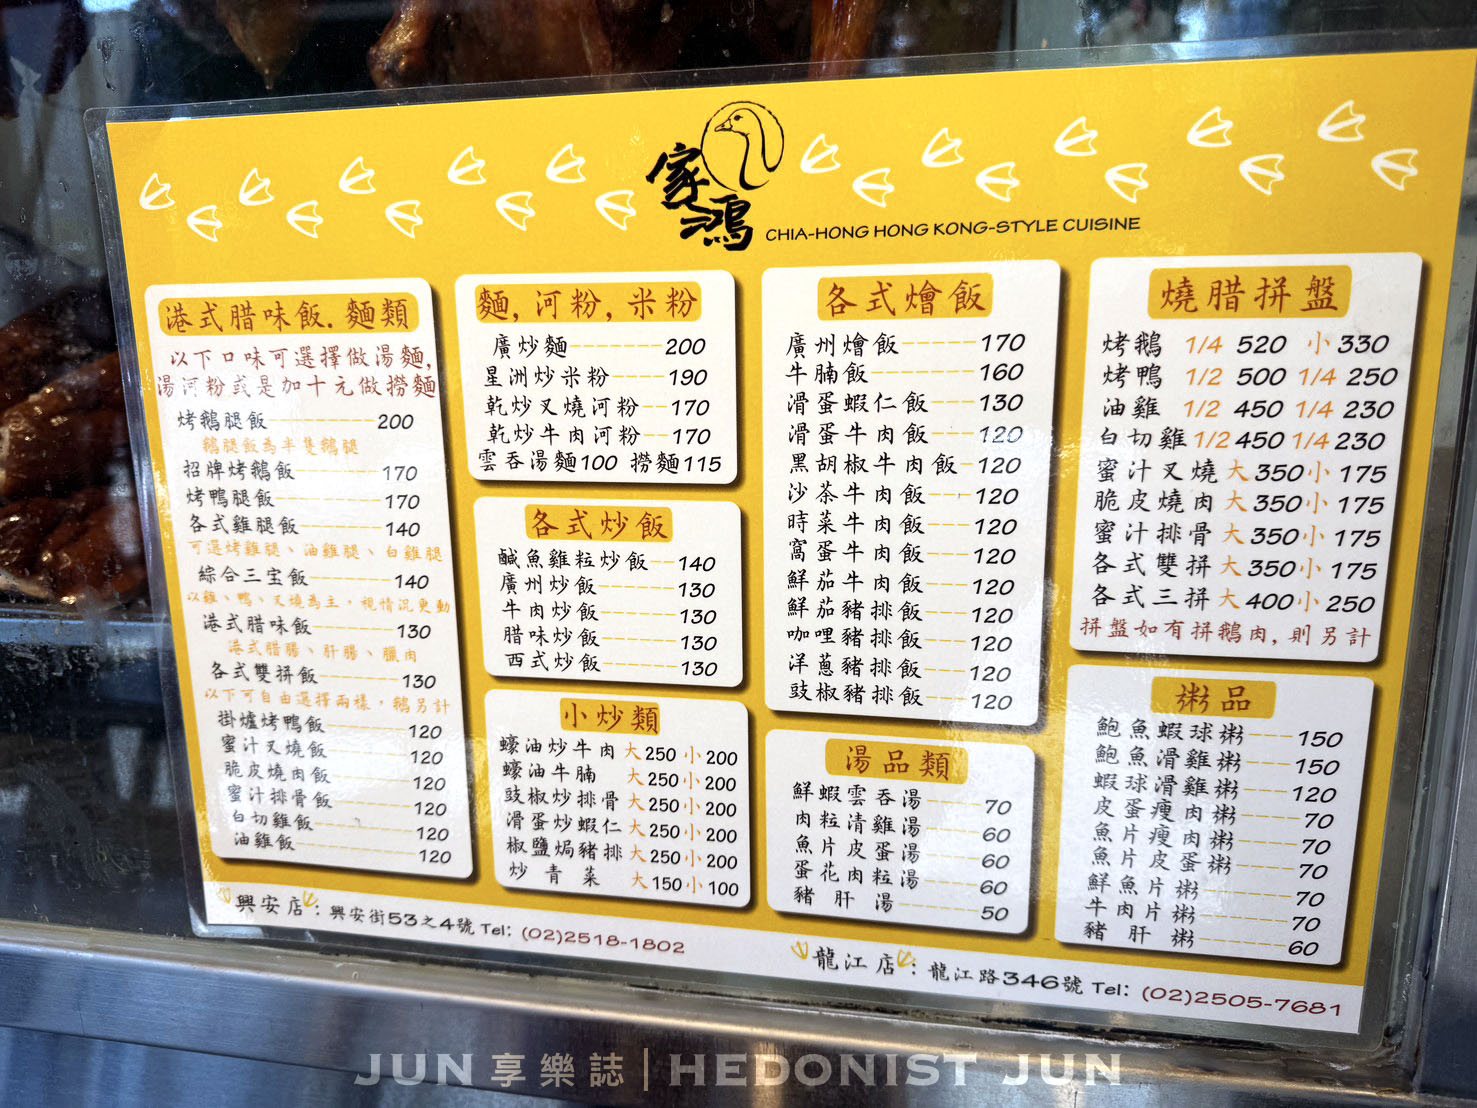 家鴻
CHIA-HONG HONG KONG-STYLE CUISINE
港式腊味飯.麵類
以下口味可選擇做湯麵,
湯河粉或是加十元做撈麵
烤鵝腿飯 200
鵝腿飯為半隻鵝腿
招牌烤鵝飯 170
烤鴨腿飯 170
各式雞腿飯 140
可選烤雞腿、油雞腿、白雞腿
綜合三宝飯 140
以雞、鴨、叉燒為主，視情況更動
港式腊味飯 130
港式腊腸、肝腸、臘肉
各式雙拼飯 130
以下可自由選擇兩樣，鵝另計
掛爐烤鴨飯 120
蜜汁叉燒飯 120
脆皮燒肉飯 120
蜜汁排骨飯 120
白切雞飯 120
油雞飯 120
麵,河粉,米粉
廣炒麵 200
星洲炒米粉 190
乾炒叉燒河粉 170
乾炒牛肉河粉 170
雲吞湯麵100 撈麵115
各式炒飯
鹹魚雞粒炒飯 140
廣州炒飯 130
牛肉炒飯 130
腊味炒飯 130
西式炒飯 130
小炒類
蠔油炒牛肉 大250 小200
蠔油牛腩 大250 小200
豉椒炒排骨 大250 小200
滑蛋炒蝦仁 大250 小200
椒鹽焗豬排 大250 小200
炒青菜 大150 小100
各式燴飯
廣州燴飯 170
牛腩飯 160
滑蛋蝦仁飯 130
滑蛋牛肉飯 120
黑胡椒牛肉飯 120
沙茶牛肉飯 120
時菜牛肉飯 120
窩蛋牛肉飯 120
鮮茄牛肉飯 120
鮮茄豬排飯 120
咖哩豬排飯 120
洋蔥豬排飯 120
豉椒豬排飯 120
湯品類
鮮蝦雲吞湯 70
肉粒清雞湯 60
魚片皮蛋湯 60
蛋花肉粒湯 60
豬肝湯 50
燒腊拼盤
烤鵝 1/4 520 小 330
烤鴨 1/2 500 1/4 250
油雞 1/2 450 1/4 230
白切雞 1/2 450 1/4 230
蜜汁叉燒 大 350 小 175
脆皮燒肉 大 350 小 175
蜜汁排骨 大 350 小 175
各式雙拼 大 350 小 175
各式三拼 大 400 小 250
拼盤如有拼鵝肉,則另計
粥品
鮑魚蝦球粥 150
鮑魚滑雞粥 150
蝦球滑雞粥 120
皮蛋瘦肉粥 70
魚片瘦肉粥 70
魚片皮蛋粥 70
鮮魚片粥 70
牛肉片粥 70
豬肝粥 60
興安店：興安街53之4號 Tel: (02)2518-1802
龍江店：龍江路346號 Tel: (02)2505-7681
JUN享樂誌|HEDONIST JUN